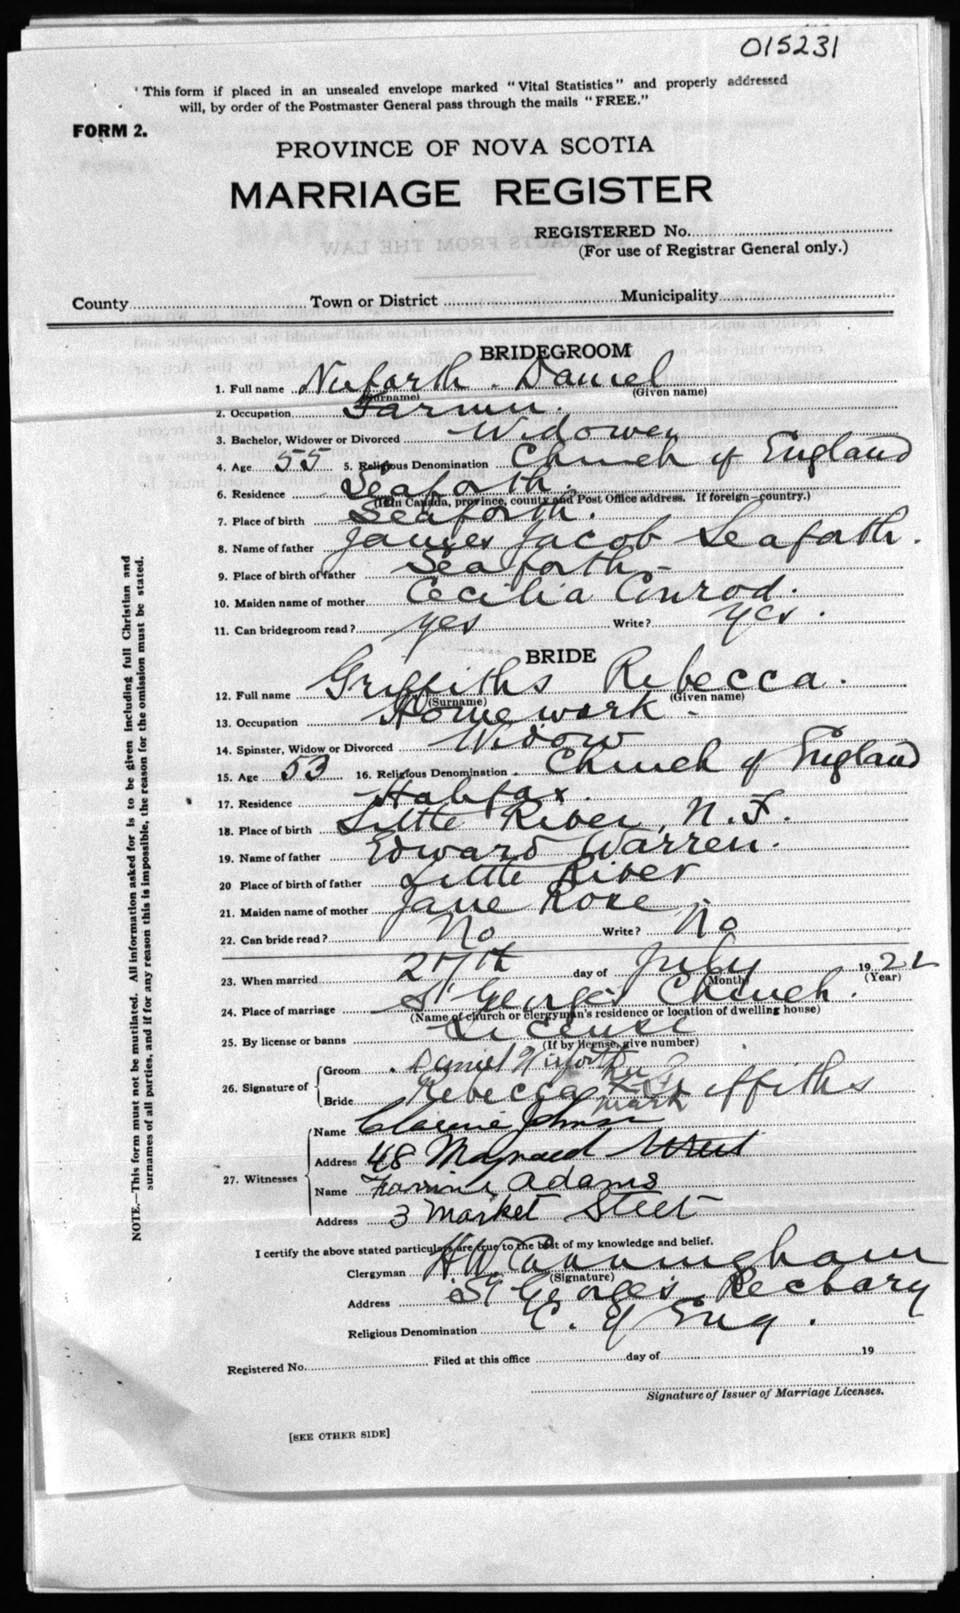 015231
"This form if placed in an unsealed envelope marked "Vital Statistics" and properly addressed
will, by order of the Postmaster General pass through the mails "FREE."
FORM 2.
PROVINCE OF NOVA SCOTIA
MARRIAGE REGISTER
REGISTERED No.
(For use of Registrar General only.)
County Town or District Municipality
BRIDEGROOM
1. Full name Nieforth. Daniel
(Surname) (Given name)
2. Occupation Farmer.
3. Bachelor, Widower or Divorced Widower
4. Age 55 5. Religious Denomination Church of England
6. Residence Seaforth.
(If in Canada, province, county and Post Office address. If foreign—country.)
7. Place of birth Seaforth.
8. Name of father James Jacob Seaforth.
9. Place of birth of father Seaforth -
10. Maiden name of mother Cecilia Conrod.
11. Can bridegroom read? yes Write? yes.
BRIDE
12. Full name Griffiths Rebecca.
(Surname) (Given name)
13. Occupation Home work -
14. Spinster, Widow or Divorced Widow
15. Age 53 16. Religious Denomination Church of England
17. Residence Halifax.
18. Place of birth Little River, N. F.
19. Name of father Edward Warren.
20 Place of birth of father Little River
21. Maiden name of mother Jane Rose
22. Can bride read? No Write? No
23. When married 27th day of July 1922
(Month) (Year)
24. Place of marriage St George's Church.
(Name of church or clergyman's residence or location of dwelling house)
25. By license or banns License
(If by license, give number)
26. Signature of Groom Daniel Nieforth
Bride Rebecca her X mark Griffiths
27. Witnesses Name Johnson
Address 48 Maynard Street
Name Adams
Address 3 Market Steet
I certify the above stated particulars are true to the best of my knowledge and belief.
Clergyman H W Cunningham
(Signature)
Address St George's Rectory
Religious Denomination C. of Eng.
Registered No. Filed at this office day of 19
Signature of Issuer of Marriage Licenses.
[SEE OTHER SIDE]
NOTE.—This form must not be mutilated. All information asked for is to be given including full Christian and
surnames of all parties, and if for any reason this is impossible, the reason for the omission must be stated.